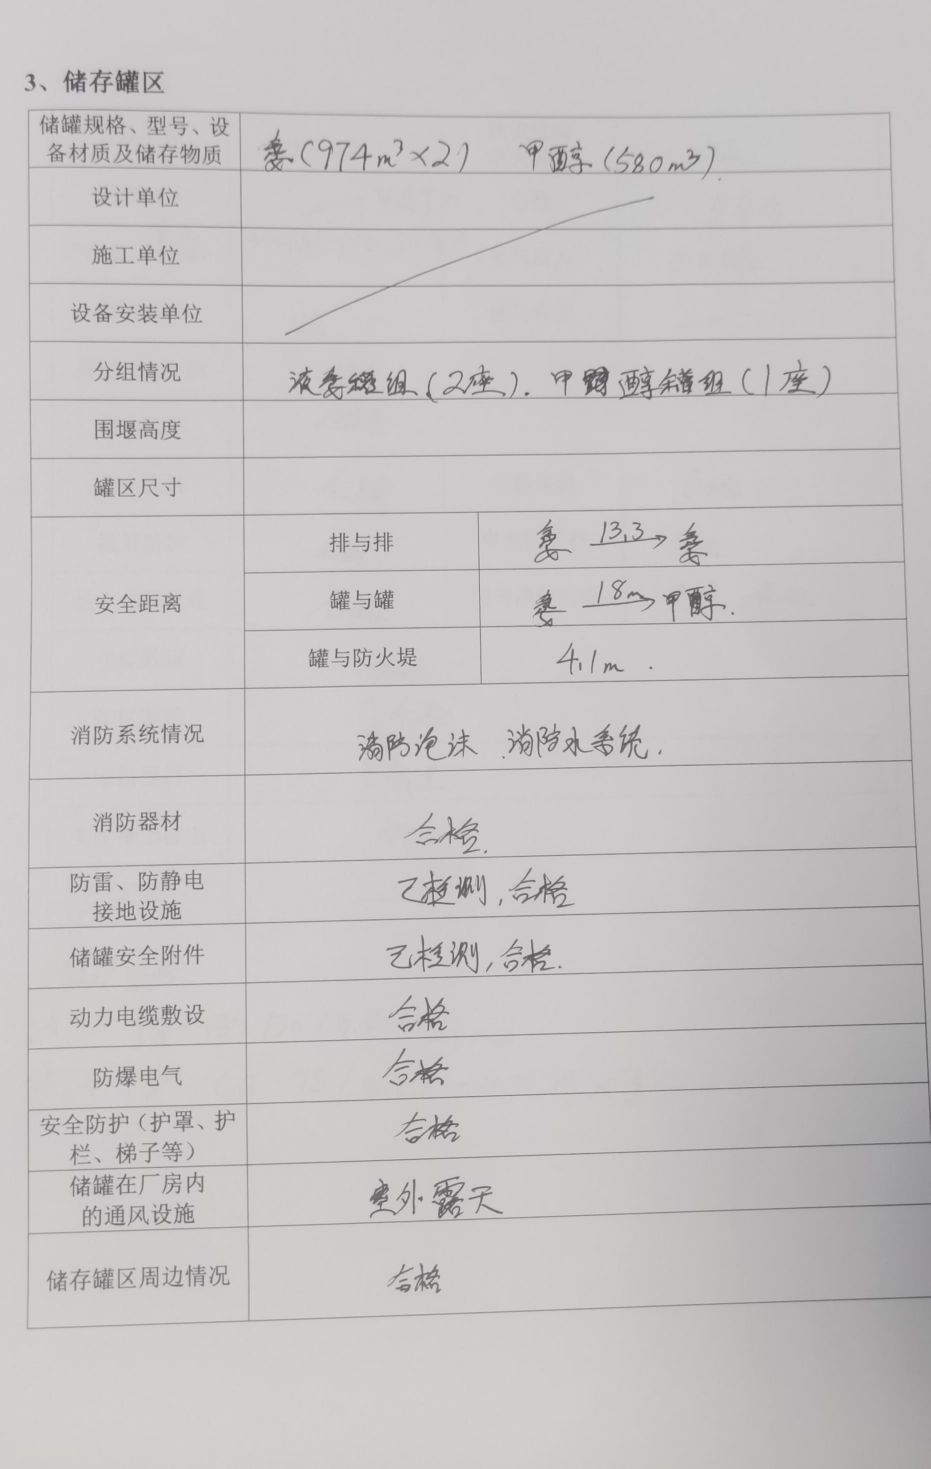 3、储存罐区
储罐规格、型号、设
备材质及储存物质
(974m³×2) 甲醇(580m³).
设计单位
施工单位
设备安装单位
分组情况
液 罐组(2座). 甲醇罐组(1座)
围堰高度
罐区尺寸
安全距离
排与排
13.3
罐与罐
18m 甲醇.
罐与防火堤
4.1m.
消防系统情况
消防泡沫.消防水系统.
消防器材
合格.
防雷、防静电
接地设施
已检测,合格
储罐安全附件
已检测,合格.
动力电缆敷设
合格
防爆电气
合格
安全防护(护罩、护
栏、梯子等)
合格
储罐在厂房内
的通风设施
室外露天
储存罐区周边情况
合格